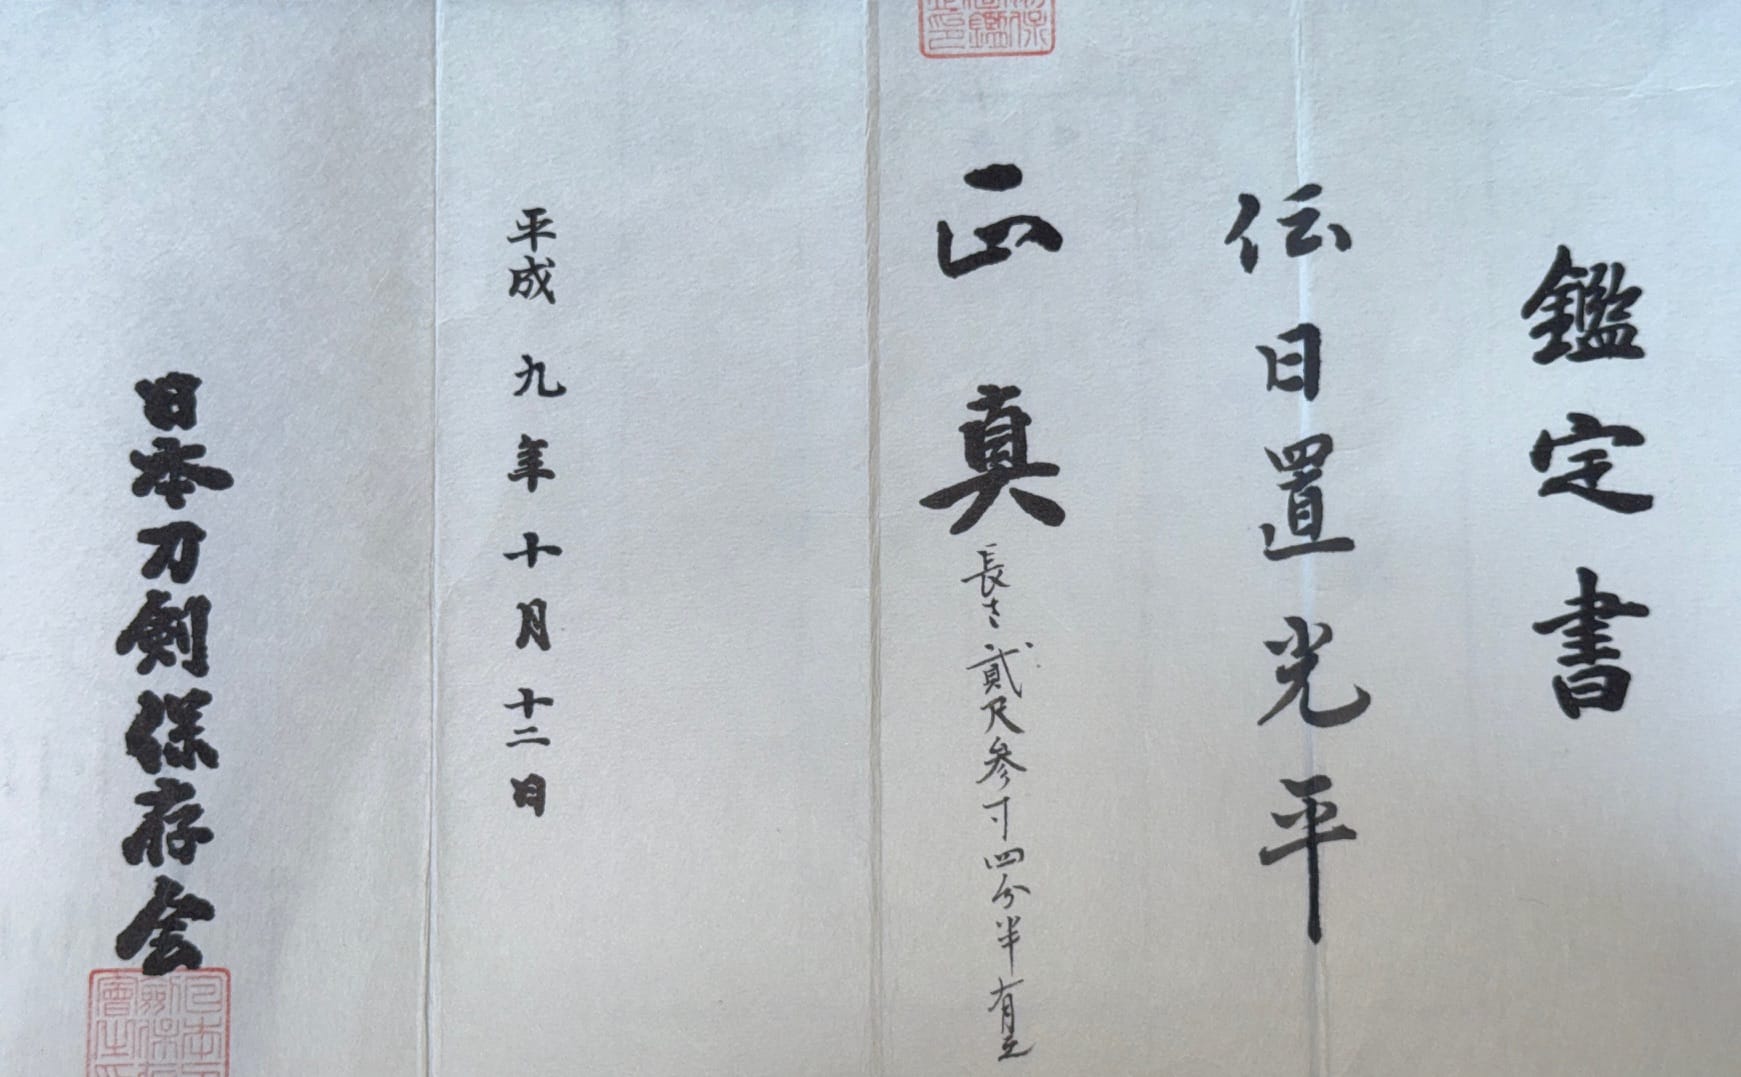 鑑定書
伝日置光平
正真
長さ貮尺参寸四分半有之
平成九年十月十二日
日本刀剣保存会